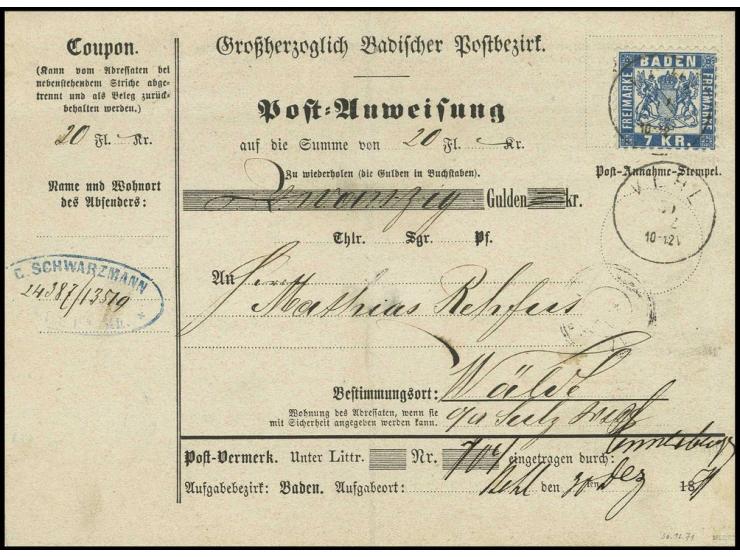 Coupon.
(Kann vom Adressaten bei
nebenstehendem Striche abge-
trennt und als Beleg zurück-
behalten werden.)
20 Fl. Kr.
Name und Wohnort
des Absenders:
C. SCHWARZMANN
24387/13519
Großherzoglich Badischer Postbezirk.
Post-Anweisung
auf die Summe von 20 Fl. Kr.
Zu wiederholen (die Gulden in Buchstaben).
Zwanzig Gulden kr.
Thlr. Sgr. Pf.
BADEN
FREIMARKE
FREIMARKE
7 KR.
Post-Annahme-Stempel.
10-12
An
Mathias Rehfus
Bestimmungsort: Wälde
Wohnung des Adressaten, wenn sie
mit Sicherheit angegeben werden kann.
Post-Vermerk. Unter Littr. Nr. eingetragen durch:
Aufgabebezirk: Baden. Aufgabeort: Kehl den 30 ten Dez 1871
30.12.71